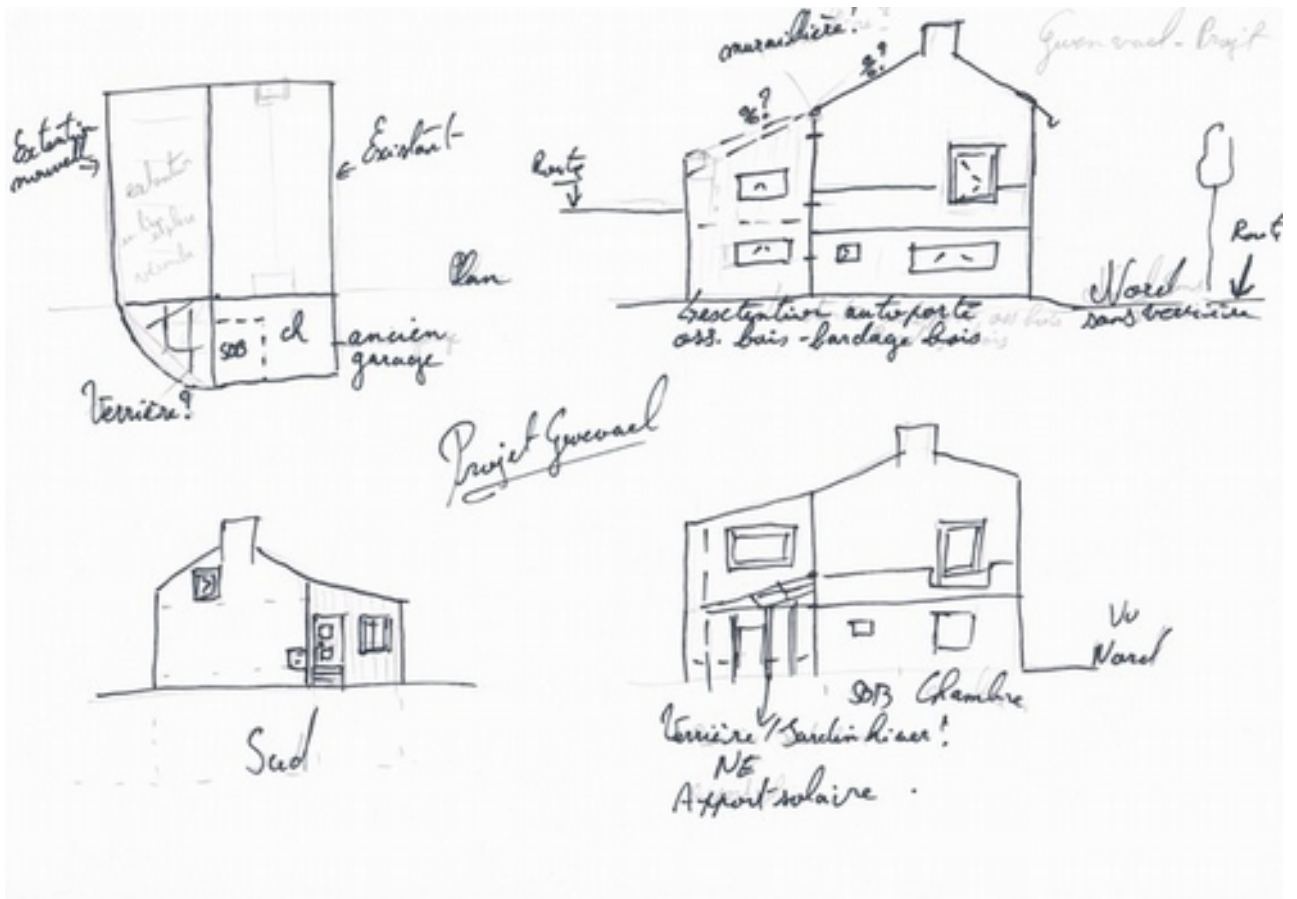 Extention
nouvelle
Existant
Plan
SDB
ch
ancien
garage
Verrière?
%?
%?
Route
Route
Nord
sans verrière
L'extention autoporté
oss. bois - bardage bois
Projet Gwevael
Sud
Vu
Nord
SDB Chambre
Verrière / Jardin hiver?
NE
Apport solaire.